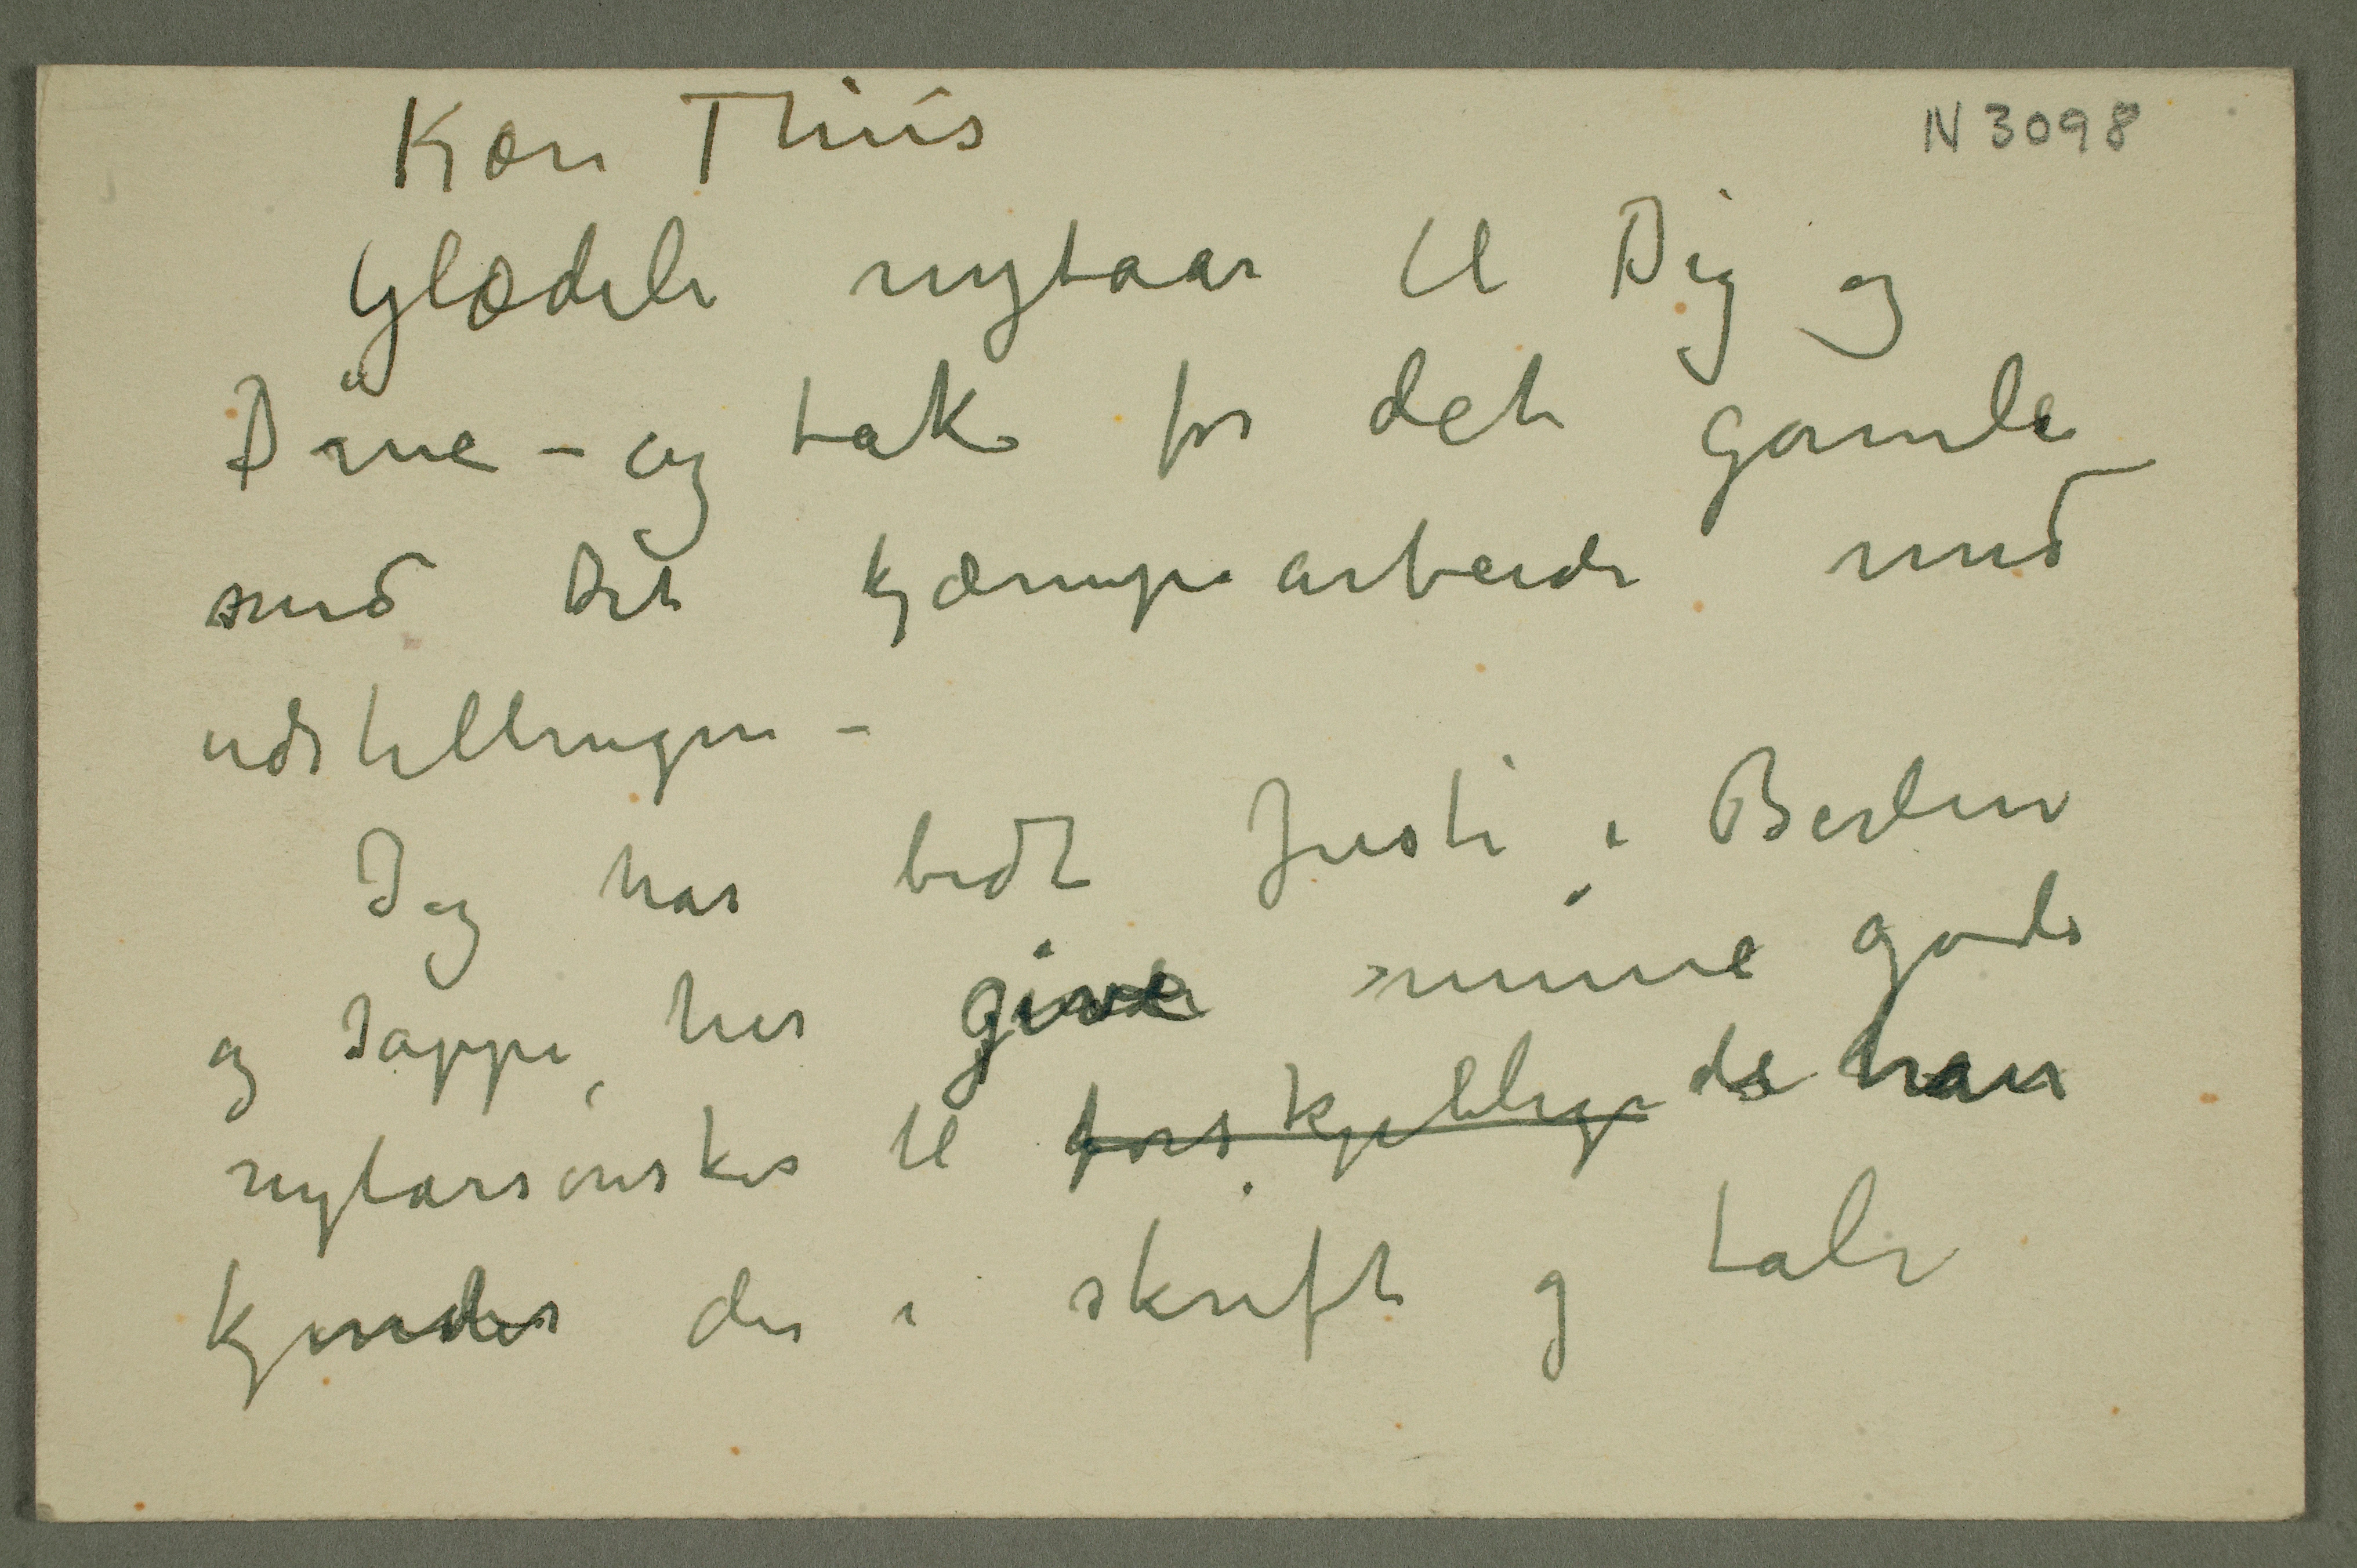 Kjære Thiis
N 3098
Glædeli nytaar til Dig og
Dine – og tak for det gamle
med Dit kjæmpearbeide med
udstillingen –
Jeg har bedt Justi i Berlin
og Jappe her give mine gode
nytarsønsker til forskjellige de han
kjender der i skrift og tale